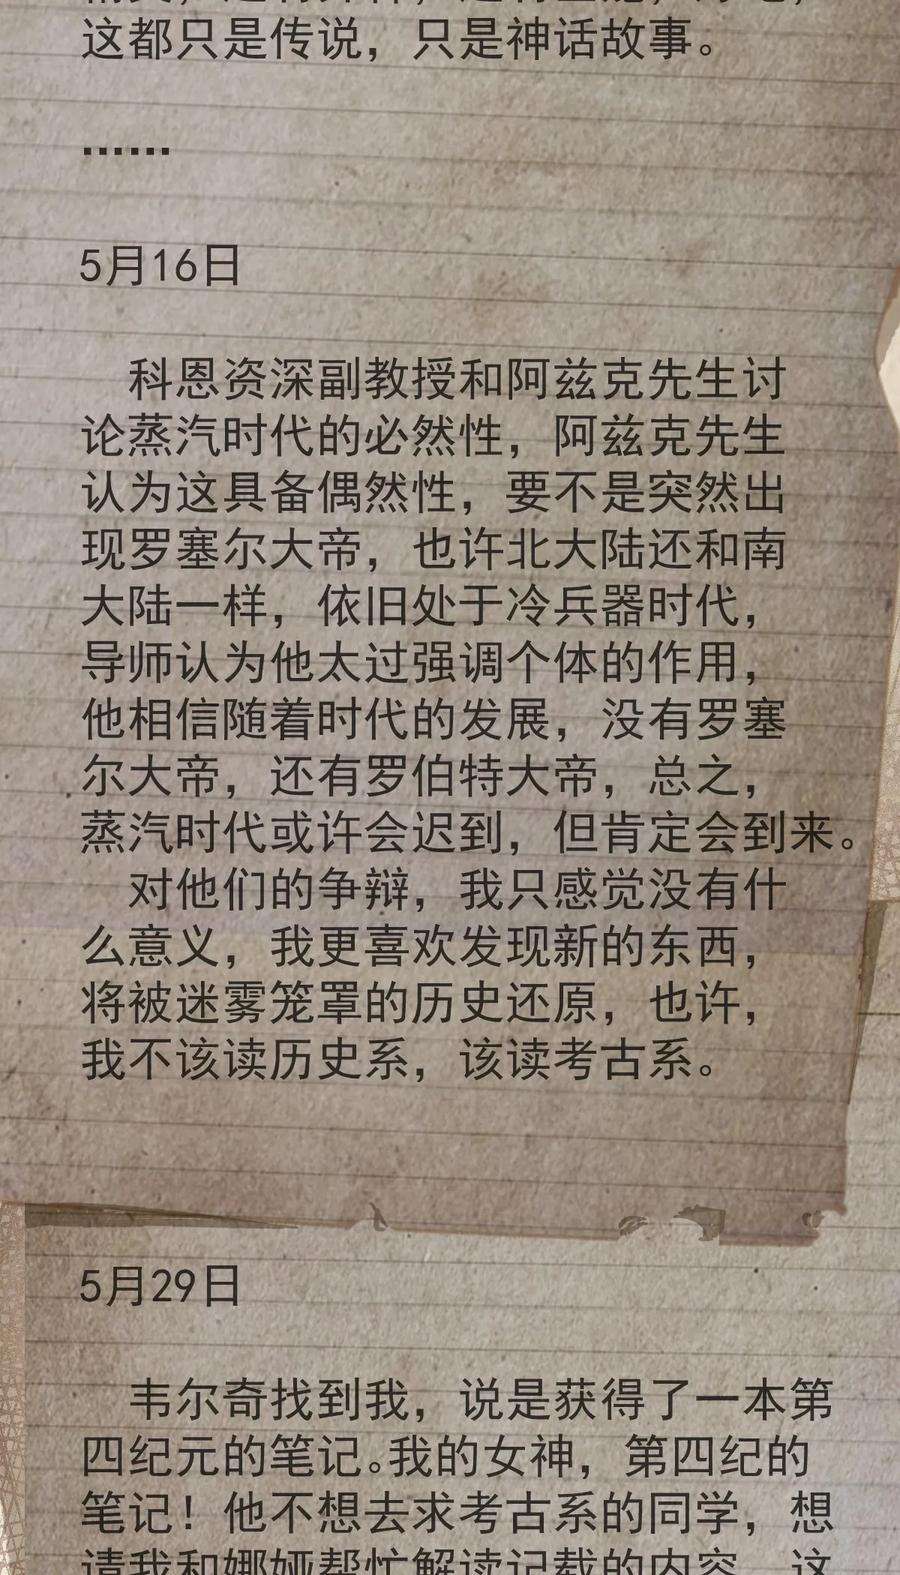 这都只是传说，只是神话故事。
……
5月16日
科恩资深副教授和阿兹克先生讨
论蒸汽时代的必然性，阿兹克先生
认为这具备偶然性，要不是突然出
现罗塞尔大帝，也许北大陆还和南
大陆一样，依旧处于冷兵器时代，
导师认为他太过强调个体的作用，
他相信随着时代的发展，没有罗塞
尔大帝，还有罗伯特大帝，总之，
蒸汽时代或许会迟到，但肯定会到来。
对他们的争辩，我只感觉没有什
么意义，我更喜欢发现新的东西，
将被迷雾笼罩的历史还原，也许，
我不该读历史系，该读考古系。
5月29日
韦尔奇找到我，说是获得了一本第
四纪元的笔记。我的女神，第四纪的
笔记！他不想去求考古系的同学，想
请我和娜娅帮忙解读记载的内容，这